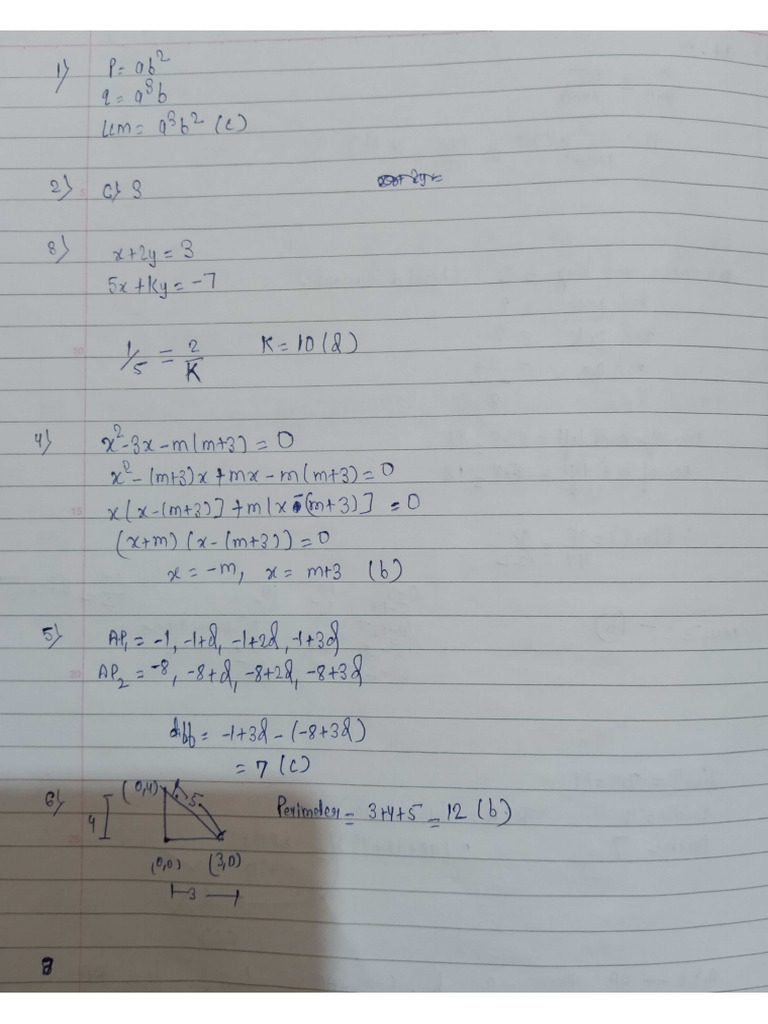 1) P = ab²
q = a³b
LCM = a³b² (c)
2) c) 3
3) x+2y = 3
5x+Ky = -7
1/5 = 2/K K = 10 (d)
4) x²-3x-m(m+3) = 0
x²-(m+3)x+mx-m(m+3) = 0
x[x-(m+3)]+m[x-(m+3)] = 0
(x+m)(x-(m+3)) = 0
x = -m, x = m+3 (b)
5) AP₁ = -1, -1+d, -1+2d, -1+3d
AP₂ = -8, -8+d, -8+2d, -8+3d
diff = -1+3d-(-8+3d)
= 7 (c)
6) (0,4) 5 Perimeter = 3+4+5 = 12 (b)
4
(0,0) (3,0)
3